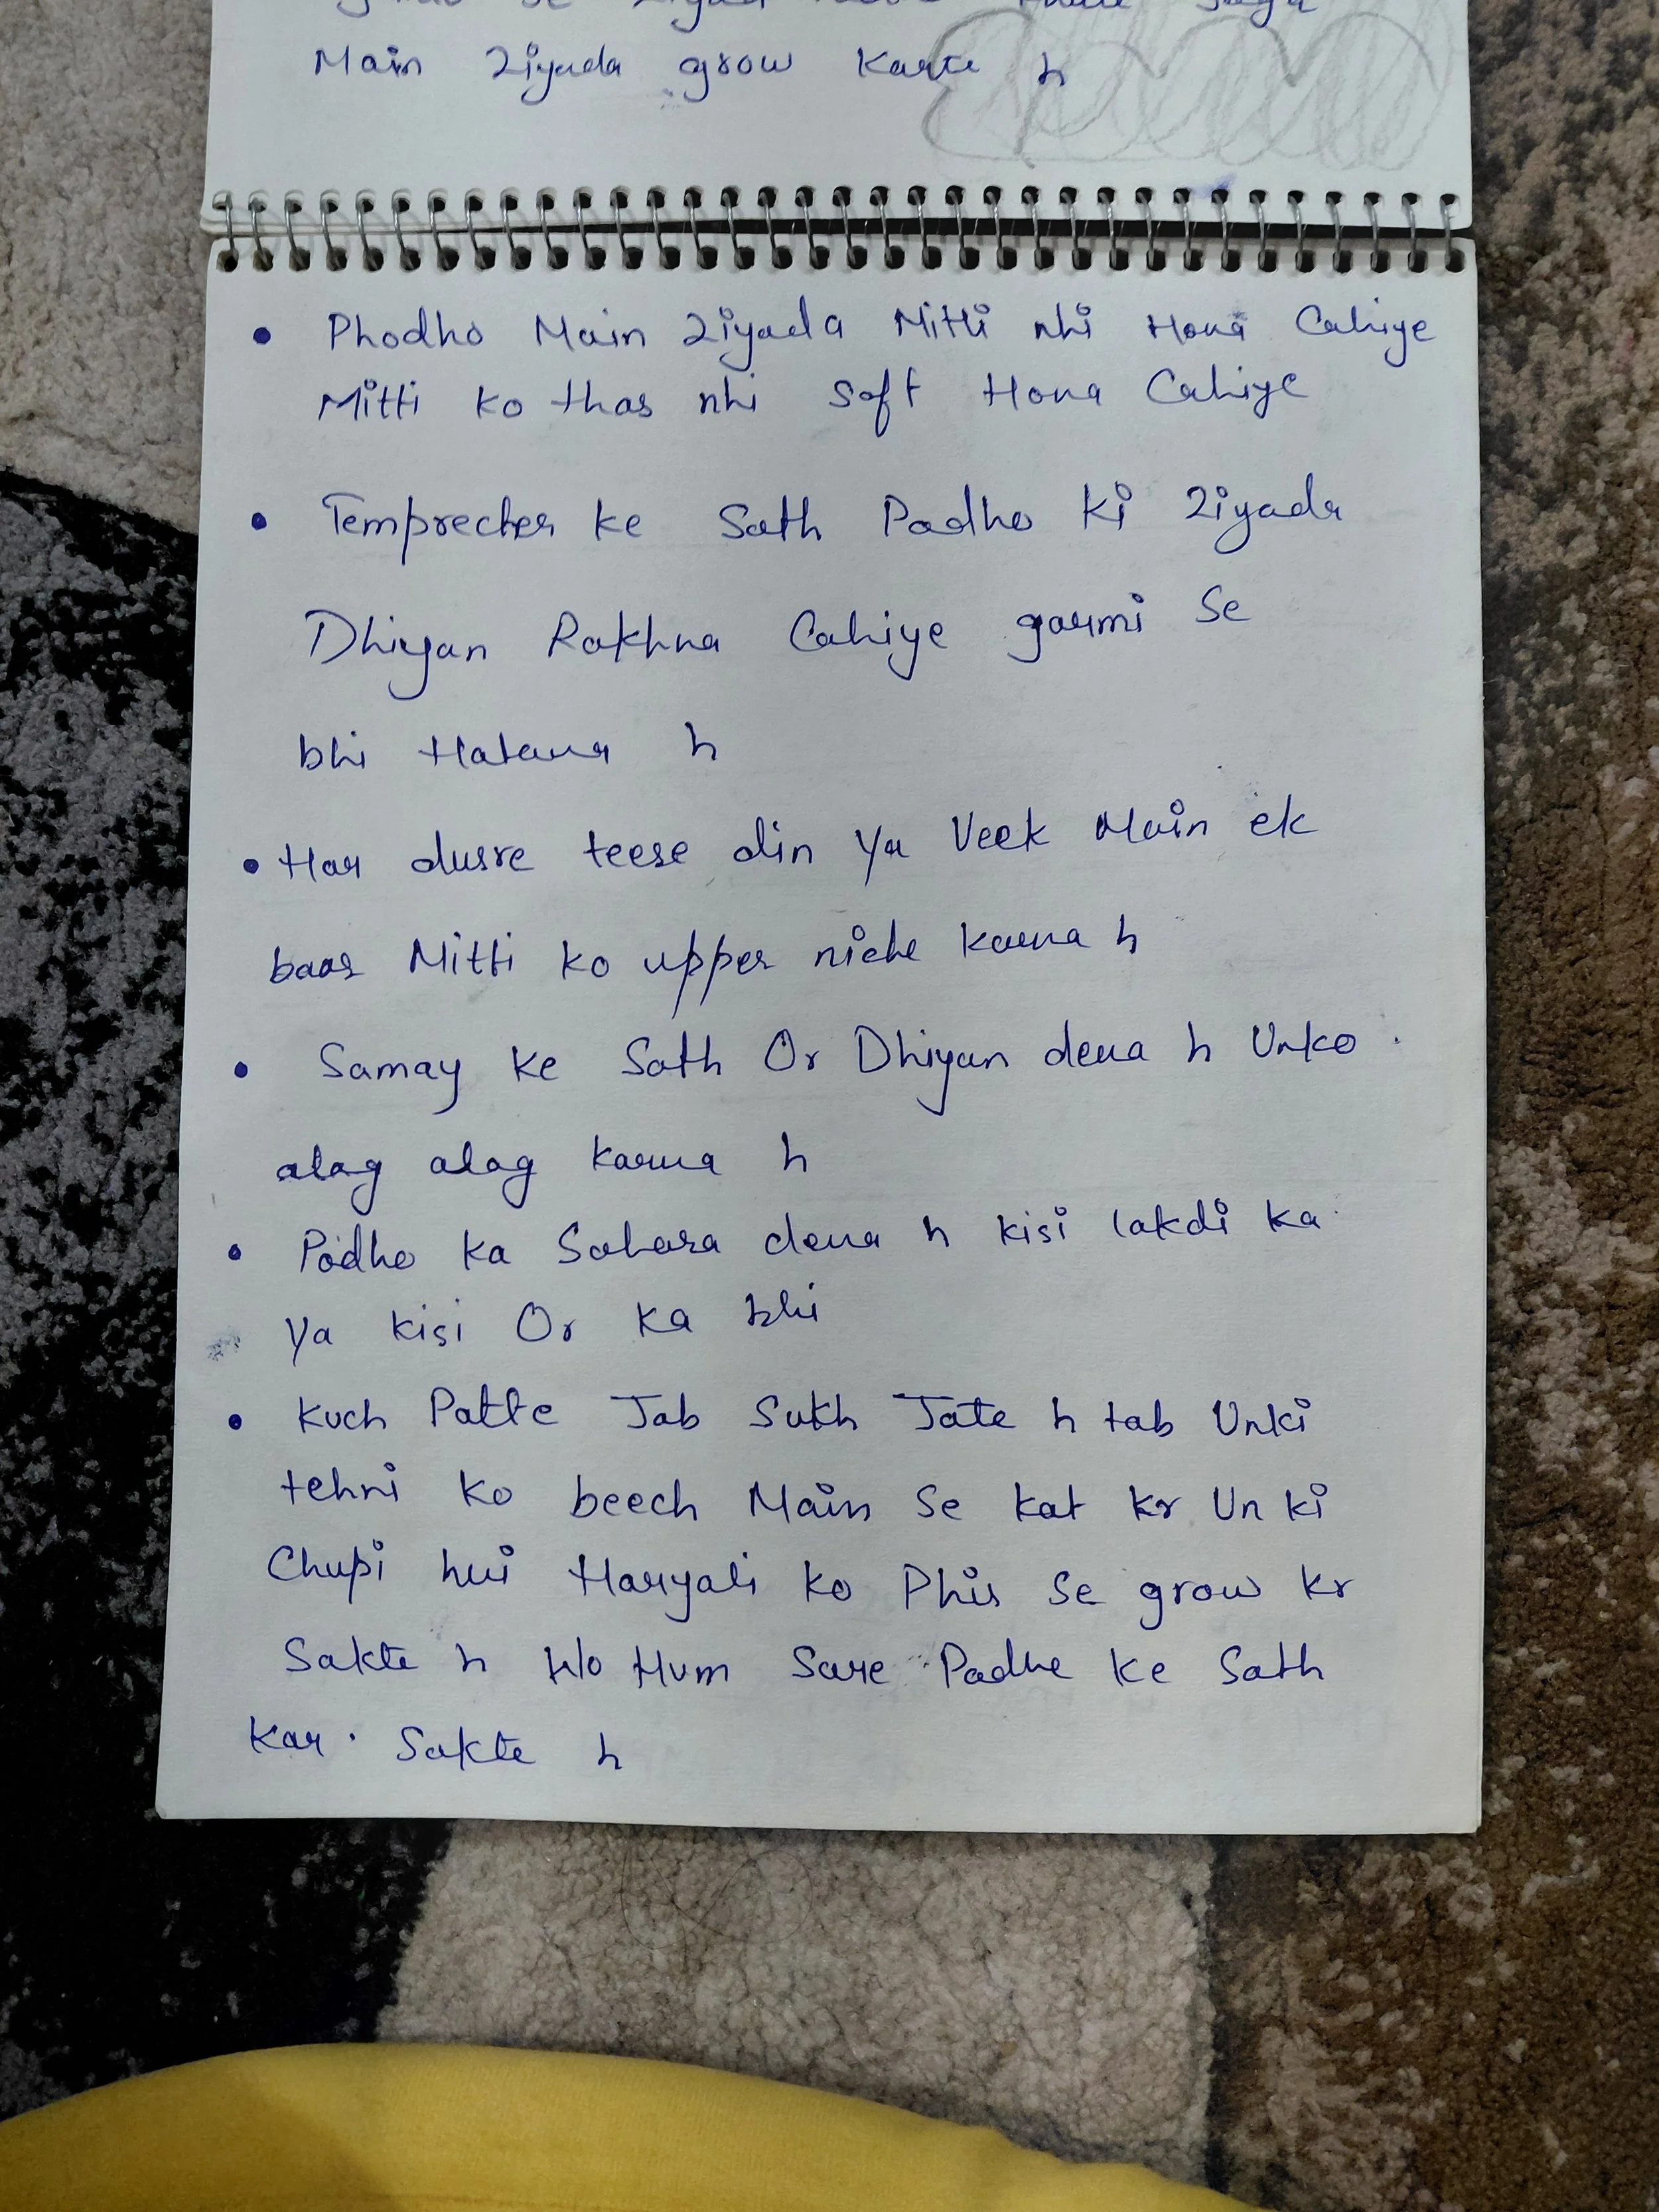 Main Ziyada grow Karte h
• Phodho Main Ziyada Mitti nhi Hona Cahiye
Mitti ko thas nhi Soft Hona Cahiye
• Temprecher ke Sath Padho Ki Ziyada
Dhiyan Rakhna Cahiye garmi Se
bhi Hatana h
• Har dusre teese din Ya Veek Main ek
baar Mitti ko upper niche karna h
• Samay ke Sath Or Dhiyan dena h Unko
alag alag karna h
• Podho ka Sahara dena h kisi lakdi ka
Ya kisi Or ka bhi
• Kuch Patte Jab Sukh Jate h tab Unki
tehni ko beech Main Se kat kr Un ki
Chupi hui Haryali ko Phir Se grow kr
Sakte h Wo Hum Sare Padhe ke Sath
Kar Sakte h